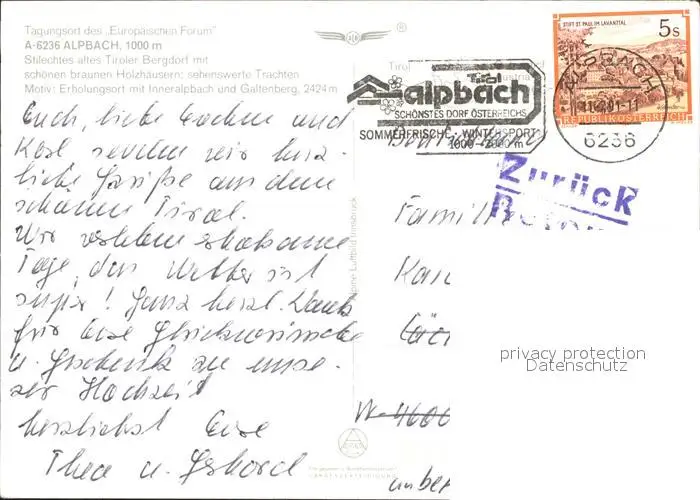 Tagungsort des „Europäischen Forum"
A-6236 ALPBACH, 1000 m
Stilechtes altes Tiroler Bergdorf mit
schönen braunen Holzhäusern; sehenswerte Trachten
Motiv: Erholungsort mit Inneralpbach und Galtenberg, 2424 m
Euch, liebe und
senden wir herz-
liche Grüße aus dem
schönen Tirol.
Wir verleben erholsame
Tage, das Wetter ist
super! Ganz herzl. Dank
für Eure Glückwünsche
u. Geschenk zu unse-
rer Hochzeit
herzlichst Eure
Thea u. Gerhard
Alpine Luftbild Innsbruck
Tirol
alpbach
SCHÖNSTES DORF ÖSTERREICHS
SOMMERFRISCHE · WINTERSPORT
1000 - 2000 m
STIFT ST. PAUL IM LAVANTTAL
5s
REPUBLIK ÖSTERREICH
ALPBACH
6236
Zurück
Familie
W-4600
privacy protection
Datenschutz